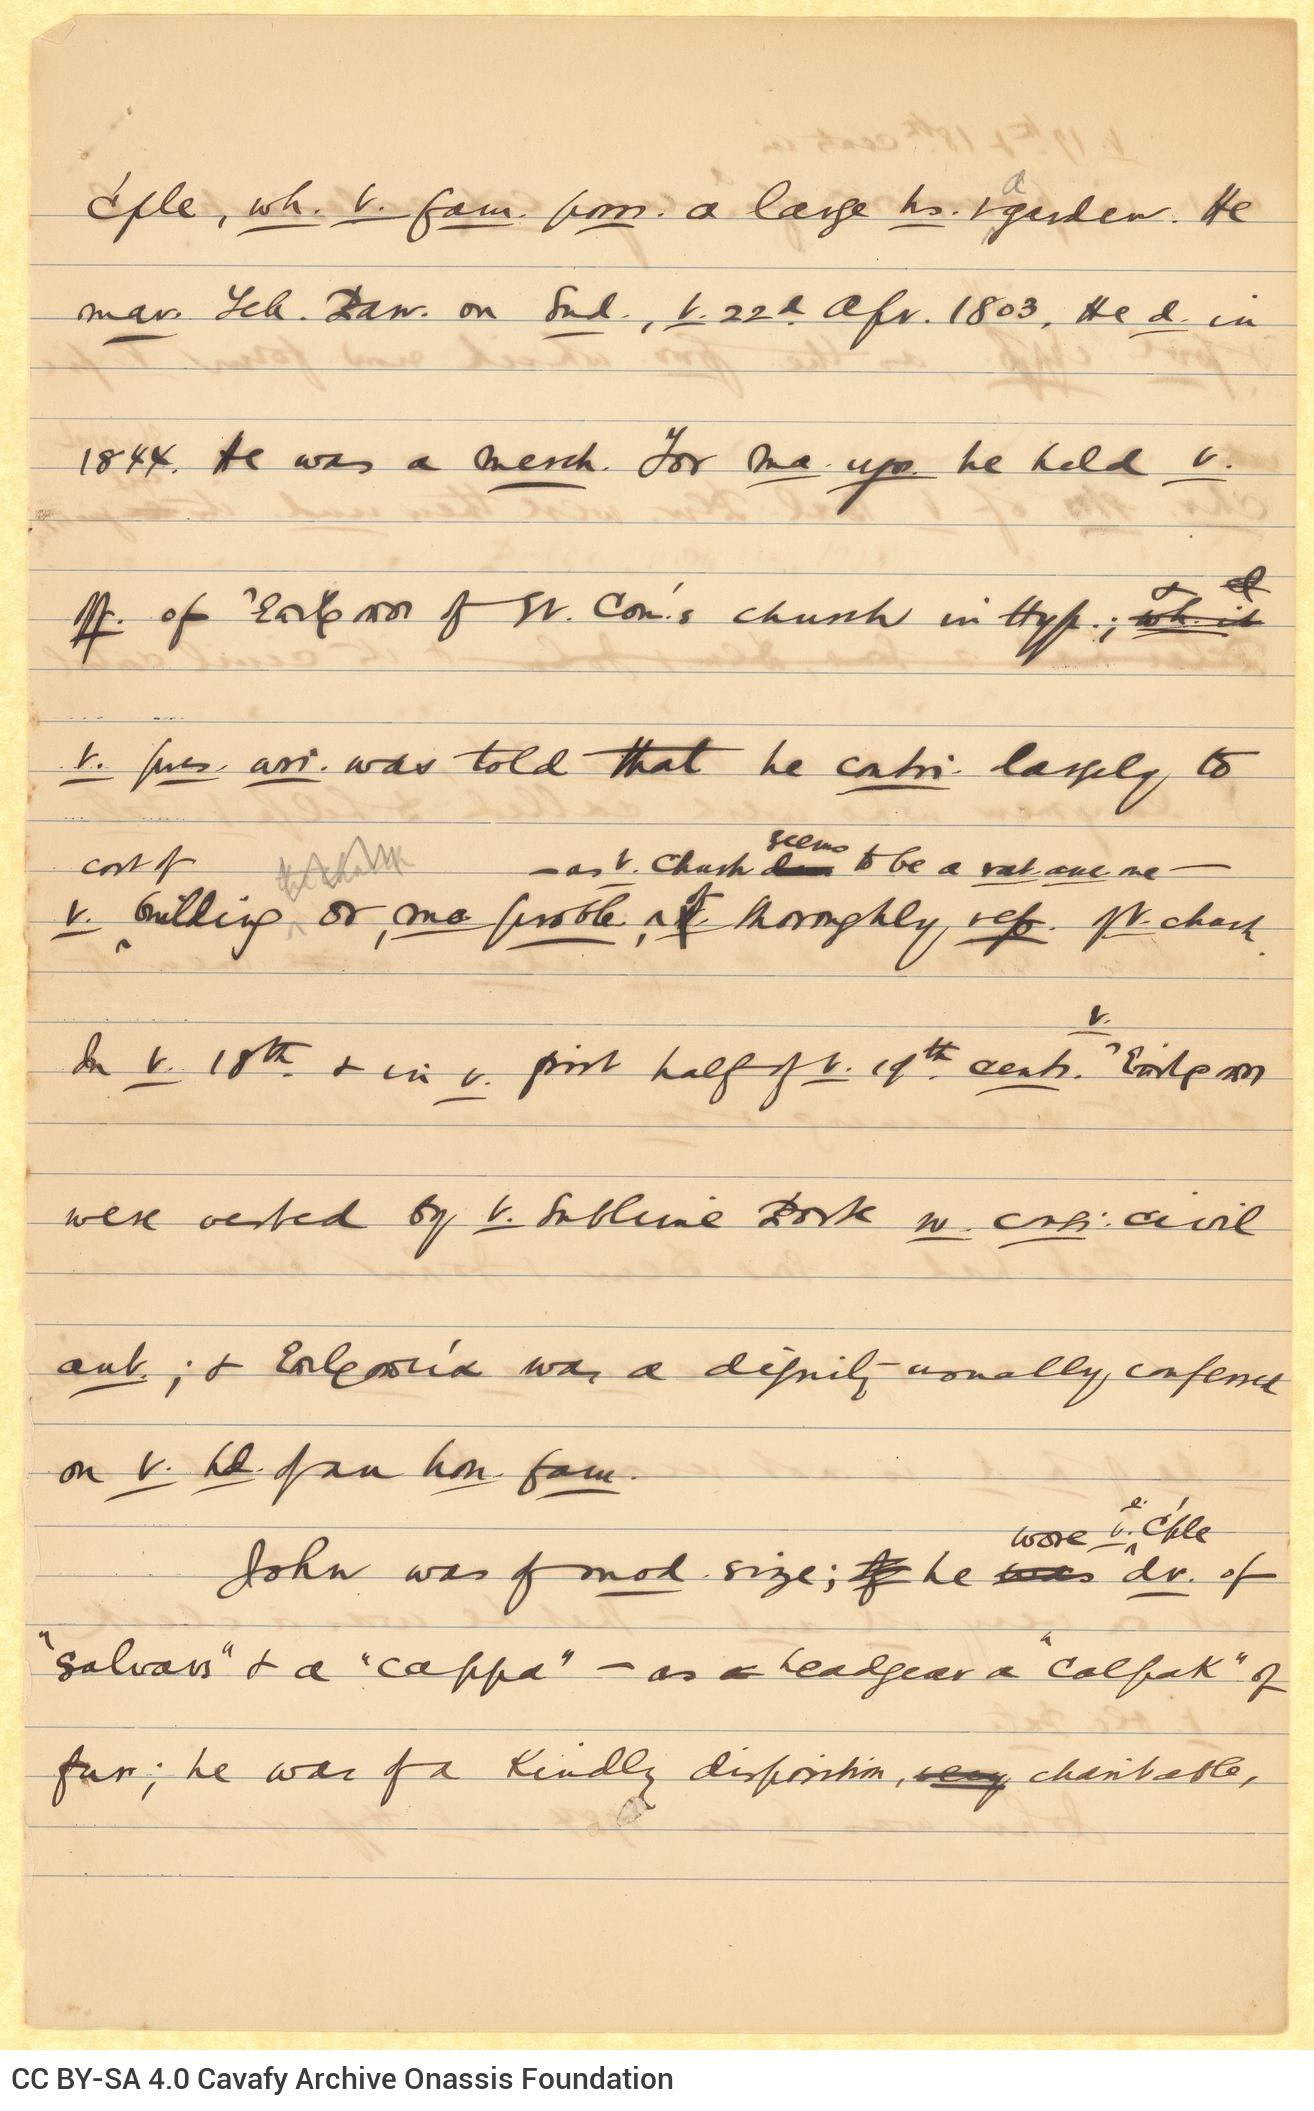 C'ple, wh. v. fam. poss. a large hs. & a garden. He
mar. Feb. on Snd., v. 22d. Apr. 1803. He d. in
1844. He was a merch. For ma. yrs. he held v.
off. of Ἐπίτροπος of St. Con.'s church in Hyps.; wh. it &
v. pres. wri. was told that he contri. largely to
cost of — as v. church seems to be a rat. anc. one —
v. building or, mo. proble., of thoroughly rep. of v. church.
v.
In v. 18th. & in v. first half of v. 19th. cents. Ἐπίτροποι
were vested by v. Sublime Porte w. consi. civil
aut.; & Ἐπιτροπεία was a dignity usually conferred
on v. hd. of an hon. fam.
wore v. C'ple
John was of mod. size; he was dr. of
"salvars" & a "cappa" – as a headgear a "calpak" of
fur; he was of a kindly disposition, very charitable,
CC BY-SA 4.0 Cavafy Archive Onassis Foundation